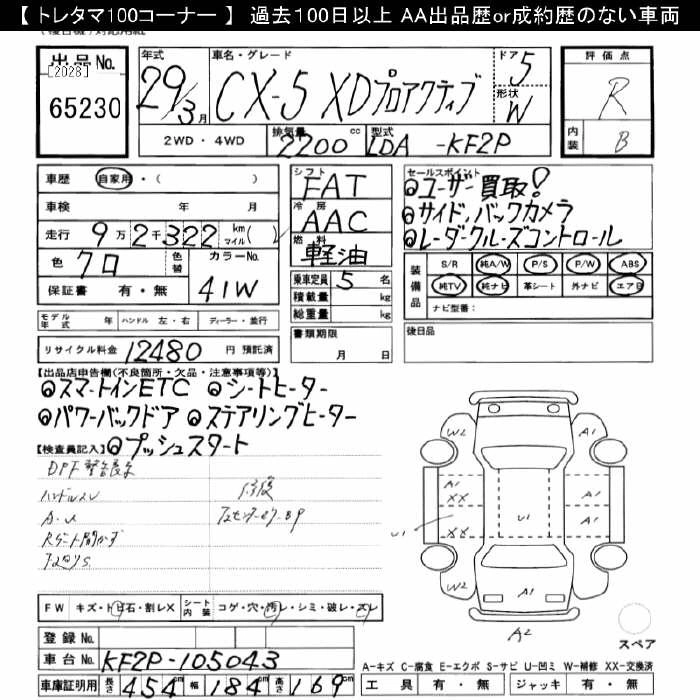 【 トレタマ100コーナー 】 過去100日以上 AA出品歴or成約歴のない車両
出品No.
[2028]
65230
年式
29/3月
車名・グレード
CX-5 XDプロアクティブ
ドア
5
形状
W
2WD・4WD
排気量
2200cc
型式
LDA -KF2P
評価点
R
内装
B
車歴 自家用・( )
車検 年 月
走行 9万2千322 km マイル( )
色 クロ 色替
カラーNo. 41W
保証書 有・無
モデル年式 年 ハンドル 左・右 ディーラー・並行
リサイクル料金 12480 円 預託済
シフト
FAT
冷房
AAC
燃料
軽油
乗車定員 5 名
積載量 kg
総重量 kg
書類期限
月 日
セールスポイント
◎ユーザー買取!
◎サイド、バックカメラ
◎レーダークルーズコントロール
装備品
S/R 純A/W P/S P/W ABS
純TV 純ナビ 革シート 外ナビ エアB
ナビ型番:
後日品
【出品店申告欄(不良箇所・欠品・注意事項等)】
◎スマートインETC ◎シートヒーター
◎パワーバックドア ◎ステアリングヒーター
【検査員記入】◎プッシュスタート
FW キズ・トビ石・割レX
シート内装 コゲ・穴・汚レ・シミ・破レ・スレ
登録No.
車台No. KF2P-105043
車庫証明用 長さ 454cm 幅 184cm 高さ 169cm
W2
A1
A1
XX
XX
U1
U1
A1
A1
W2
A1
A1
A2
スペア
A-キズ C-腐食 E-エクボ S-サビ U-凹ミ W-補修 XX-交換済
工具 有・無 ジャッキ 有・無